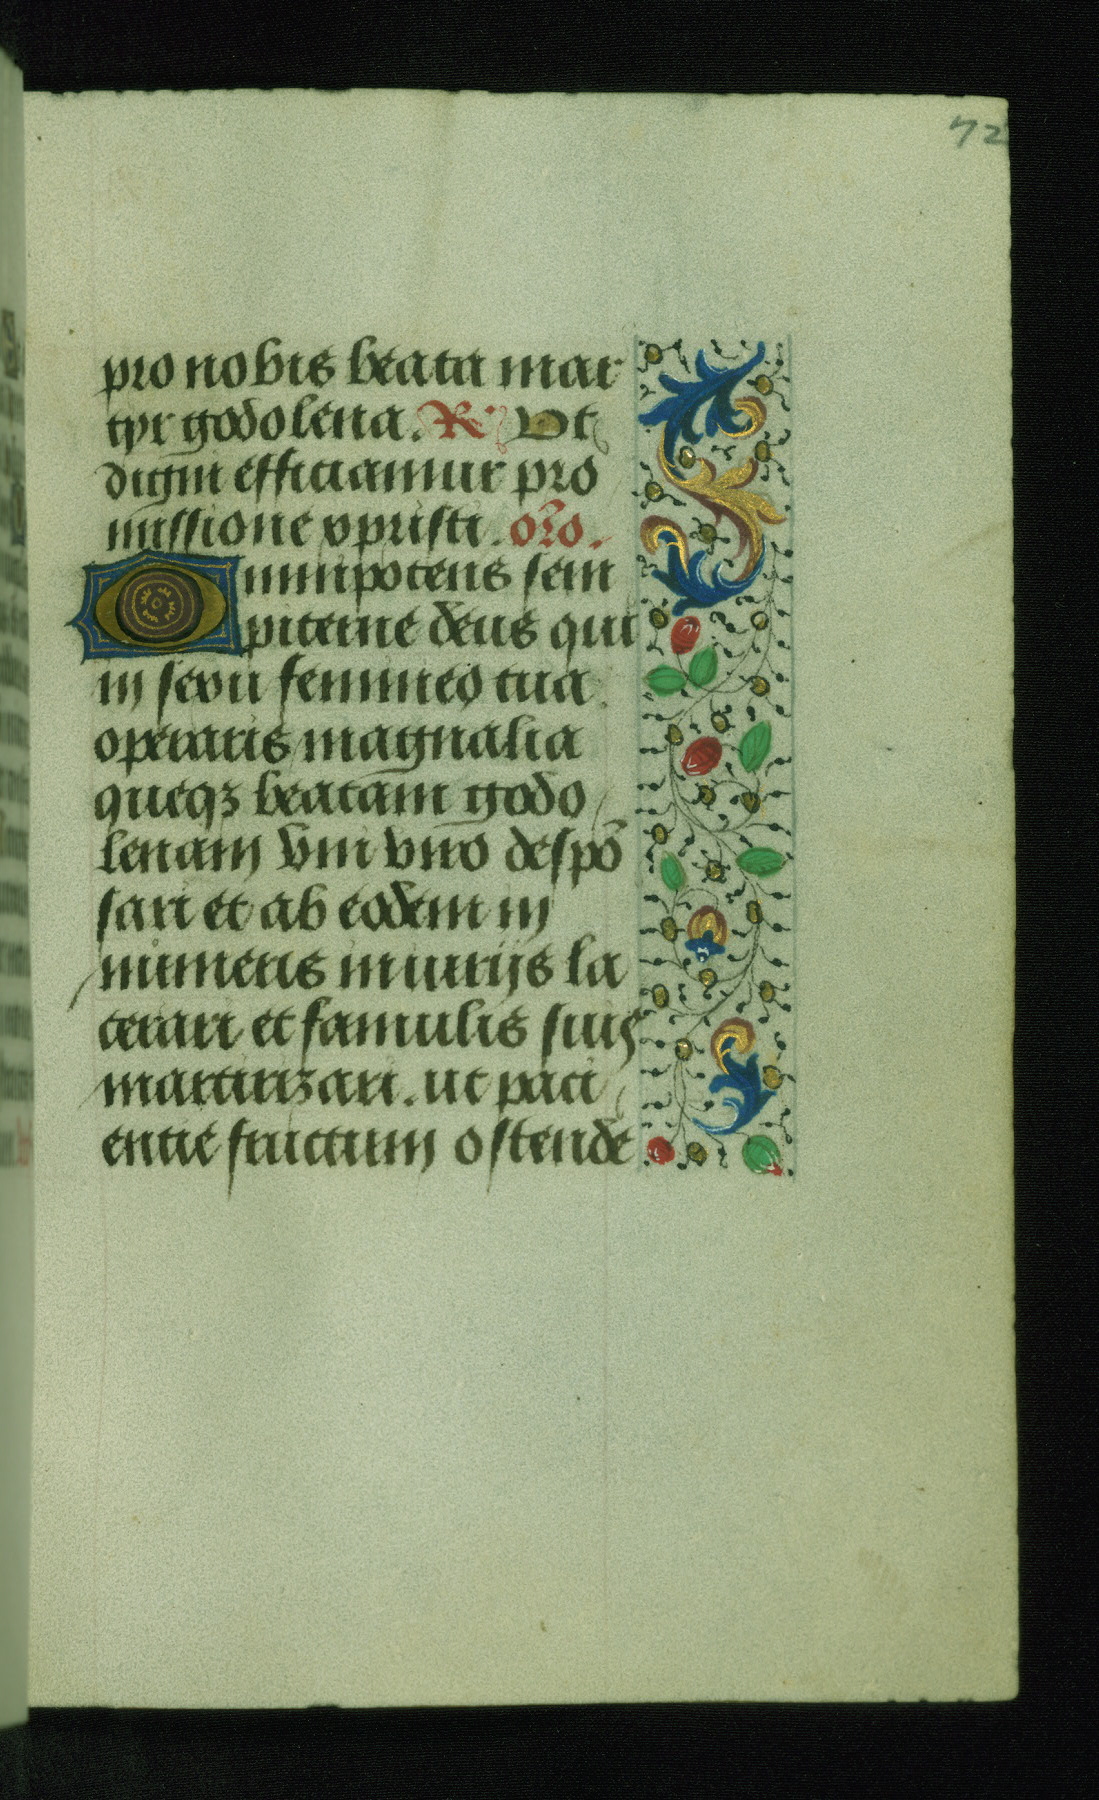 72
pro nobis beata mar
tyr godolena. R. Vt
digni efficiamur pro
missione xpristi. oro.
Omnipotens sem
piterne deus qui
in sexu femineo tua
operaris magnalia
queqz beatam godo
lenam vni viro despo
sari et ab eodem in
numeris iniurijs la
cerari et famulis suis
martirizari. ut paci
entie fructum ostende